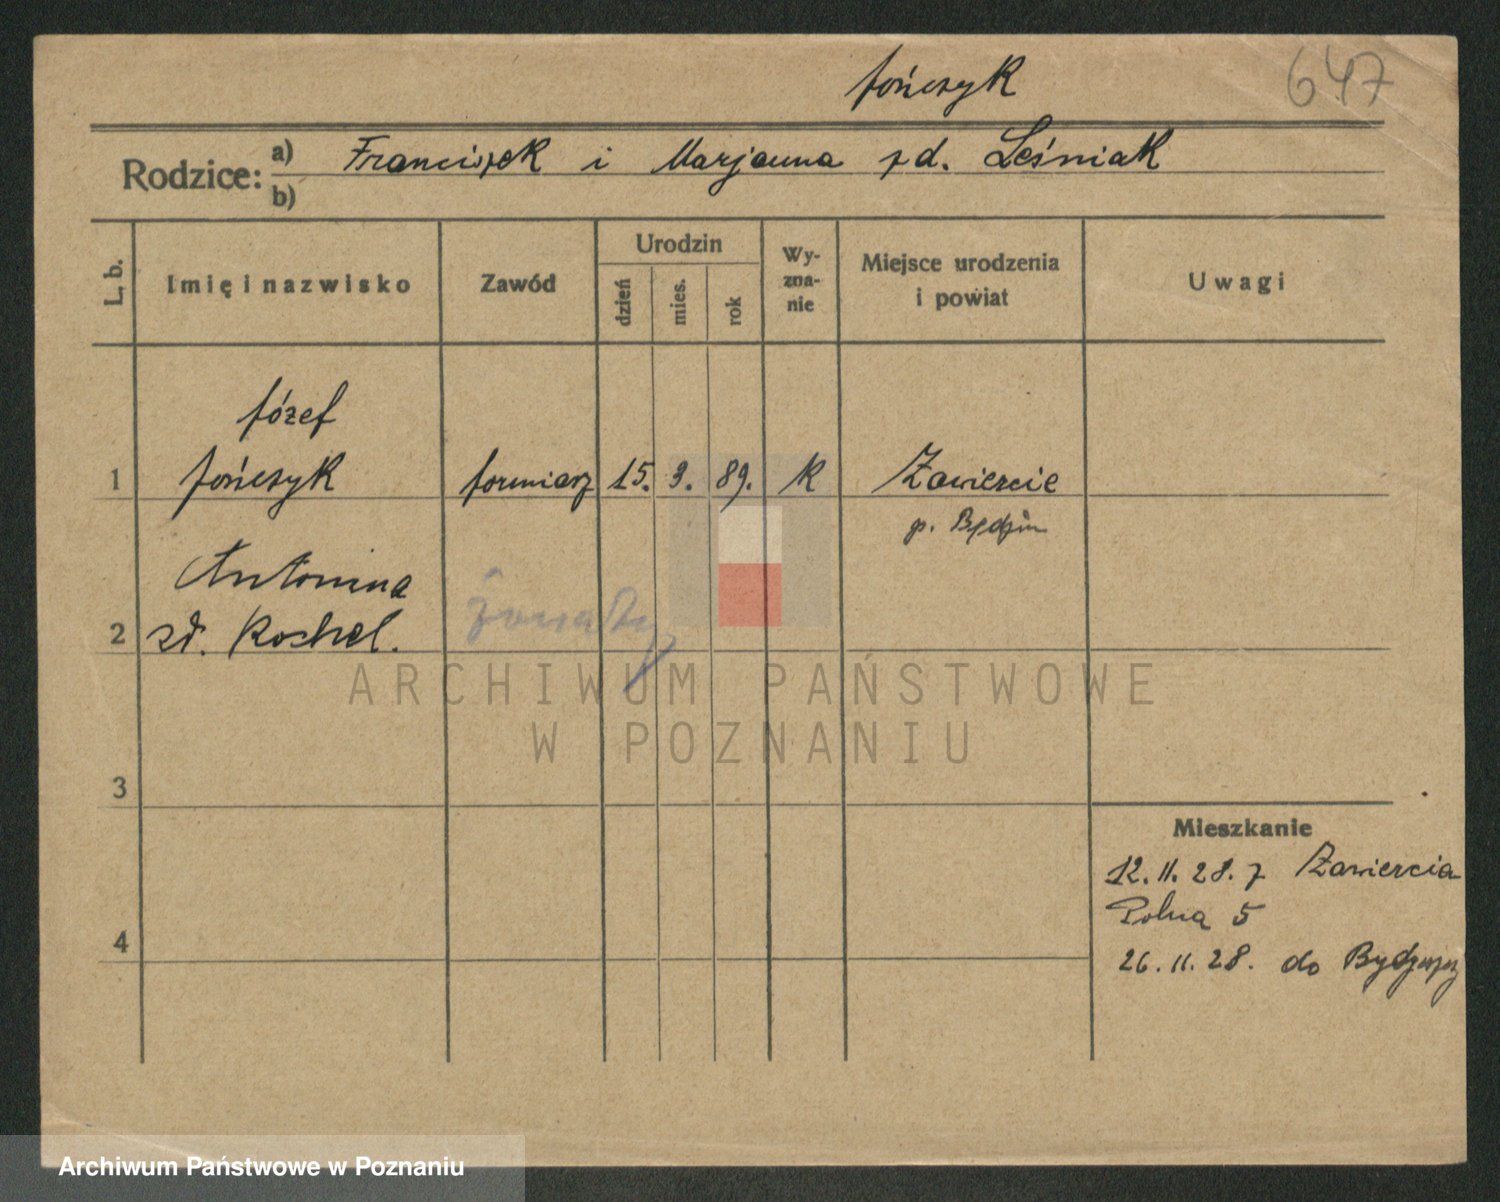 Jończyk
647
Rodzice:
a) Franciszek i Marjanna z d. Leśniak
b)
L. b.
Imię i nazwisko
Zawód
Urodzin
dzień
mies.
rok
Wy-
zna-
nie
Miejsce urodzenia
i powiat
Uwagi
Józef
1 Jończyk formiarz 15. 3. 89. k Zawiercie
p. Będzin
Antonina
2 zd. Kochel. żonaty
ARCHIWUM PAŃSTWOWE
W POZNANIU
3
Mieszkanie
12. 11. 28. z Zawiercia
Polna 5
4
26. 11. 28. do Bydgoszczy
Archiwum Państwowe w Poznaniu